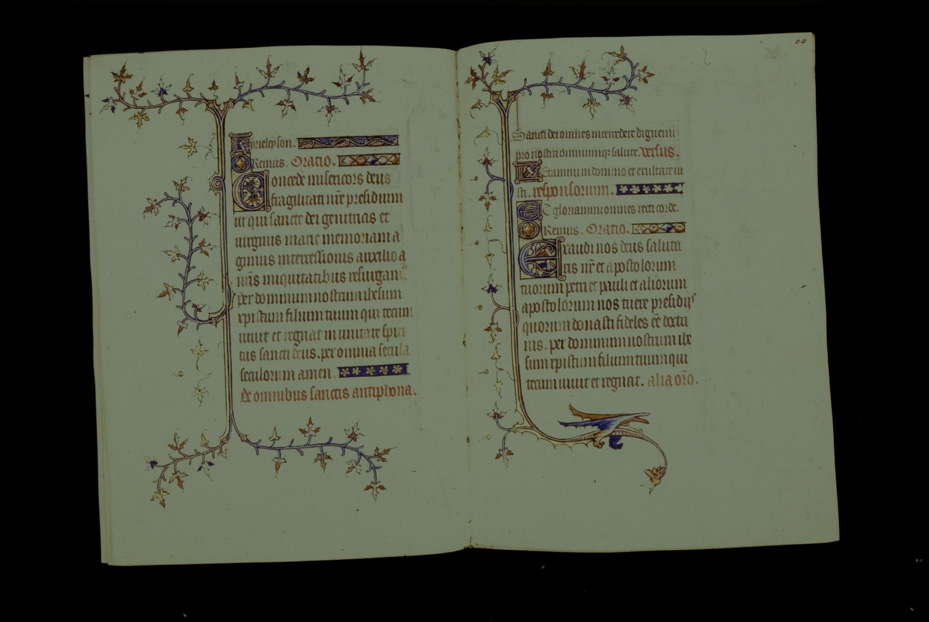 kyrieleyson.
Oremus. Oratio.
Concede misericors deus
fragilitati nr̄e presidium
ut qui sancte dei genitricis et
virginis marie memoriam a
gimus intercessionis auxilio a
nr̄is iniquitatibus resurgam̄.
per dominum nostrum ihesum
xpistum filium tuum qui tecum
vivit et regnat in unitate spiri
tus sancti deus. per omnia secula
seculorum amen.
De omnibus sanctis antiphona.
Sancti dei omnes intercedere dignemini
pro nostra omniumque salute. versus.
Letamini in domino et exultate iu
sti. responsorium.
Et gloriamini omnes recti corde.
Oremus. Oratio.
Exaudi nos deus saluta
ris nr̄ et apostolorum
tuorum petri et pauli et aliorum
apostolorum nos tuere presidiis
quorum donasti fideles eē doctri
nis. per dominum nostrum ihe
sum xpistum filium tuum qui
tecum vivit et regnat. alia or̄o.